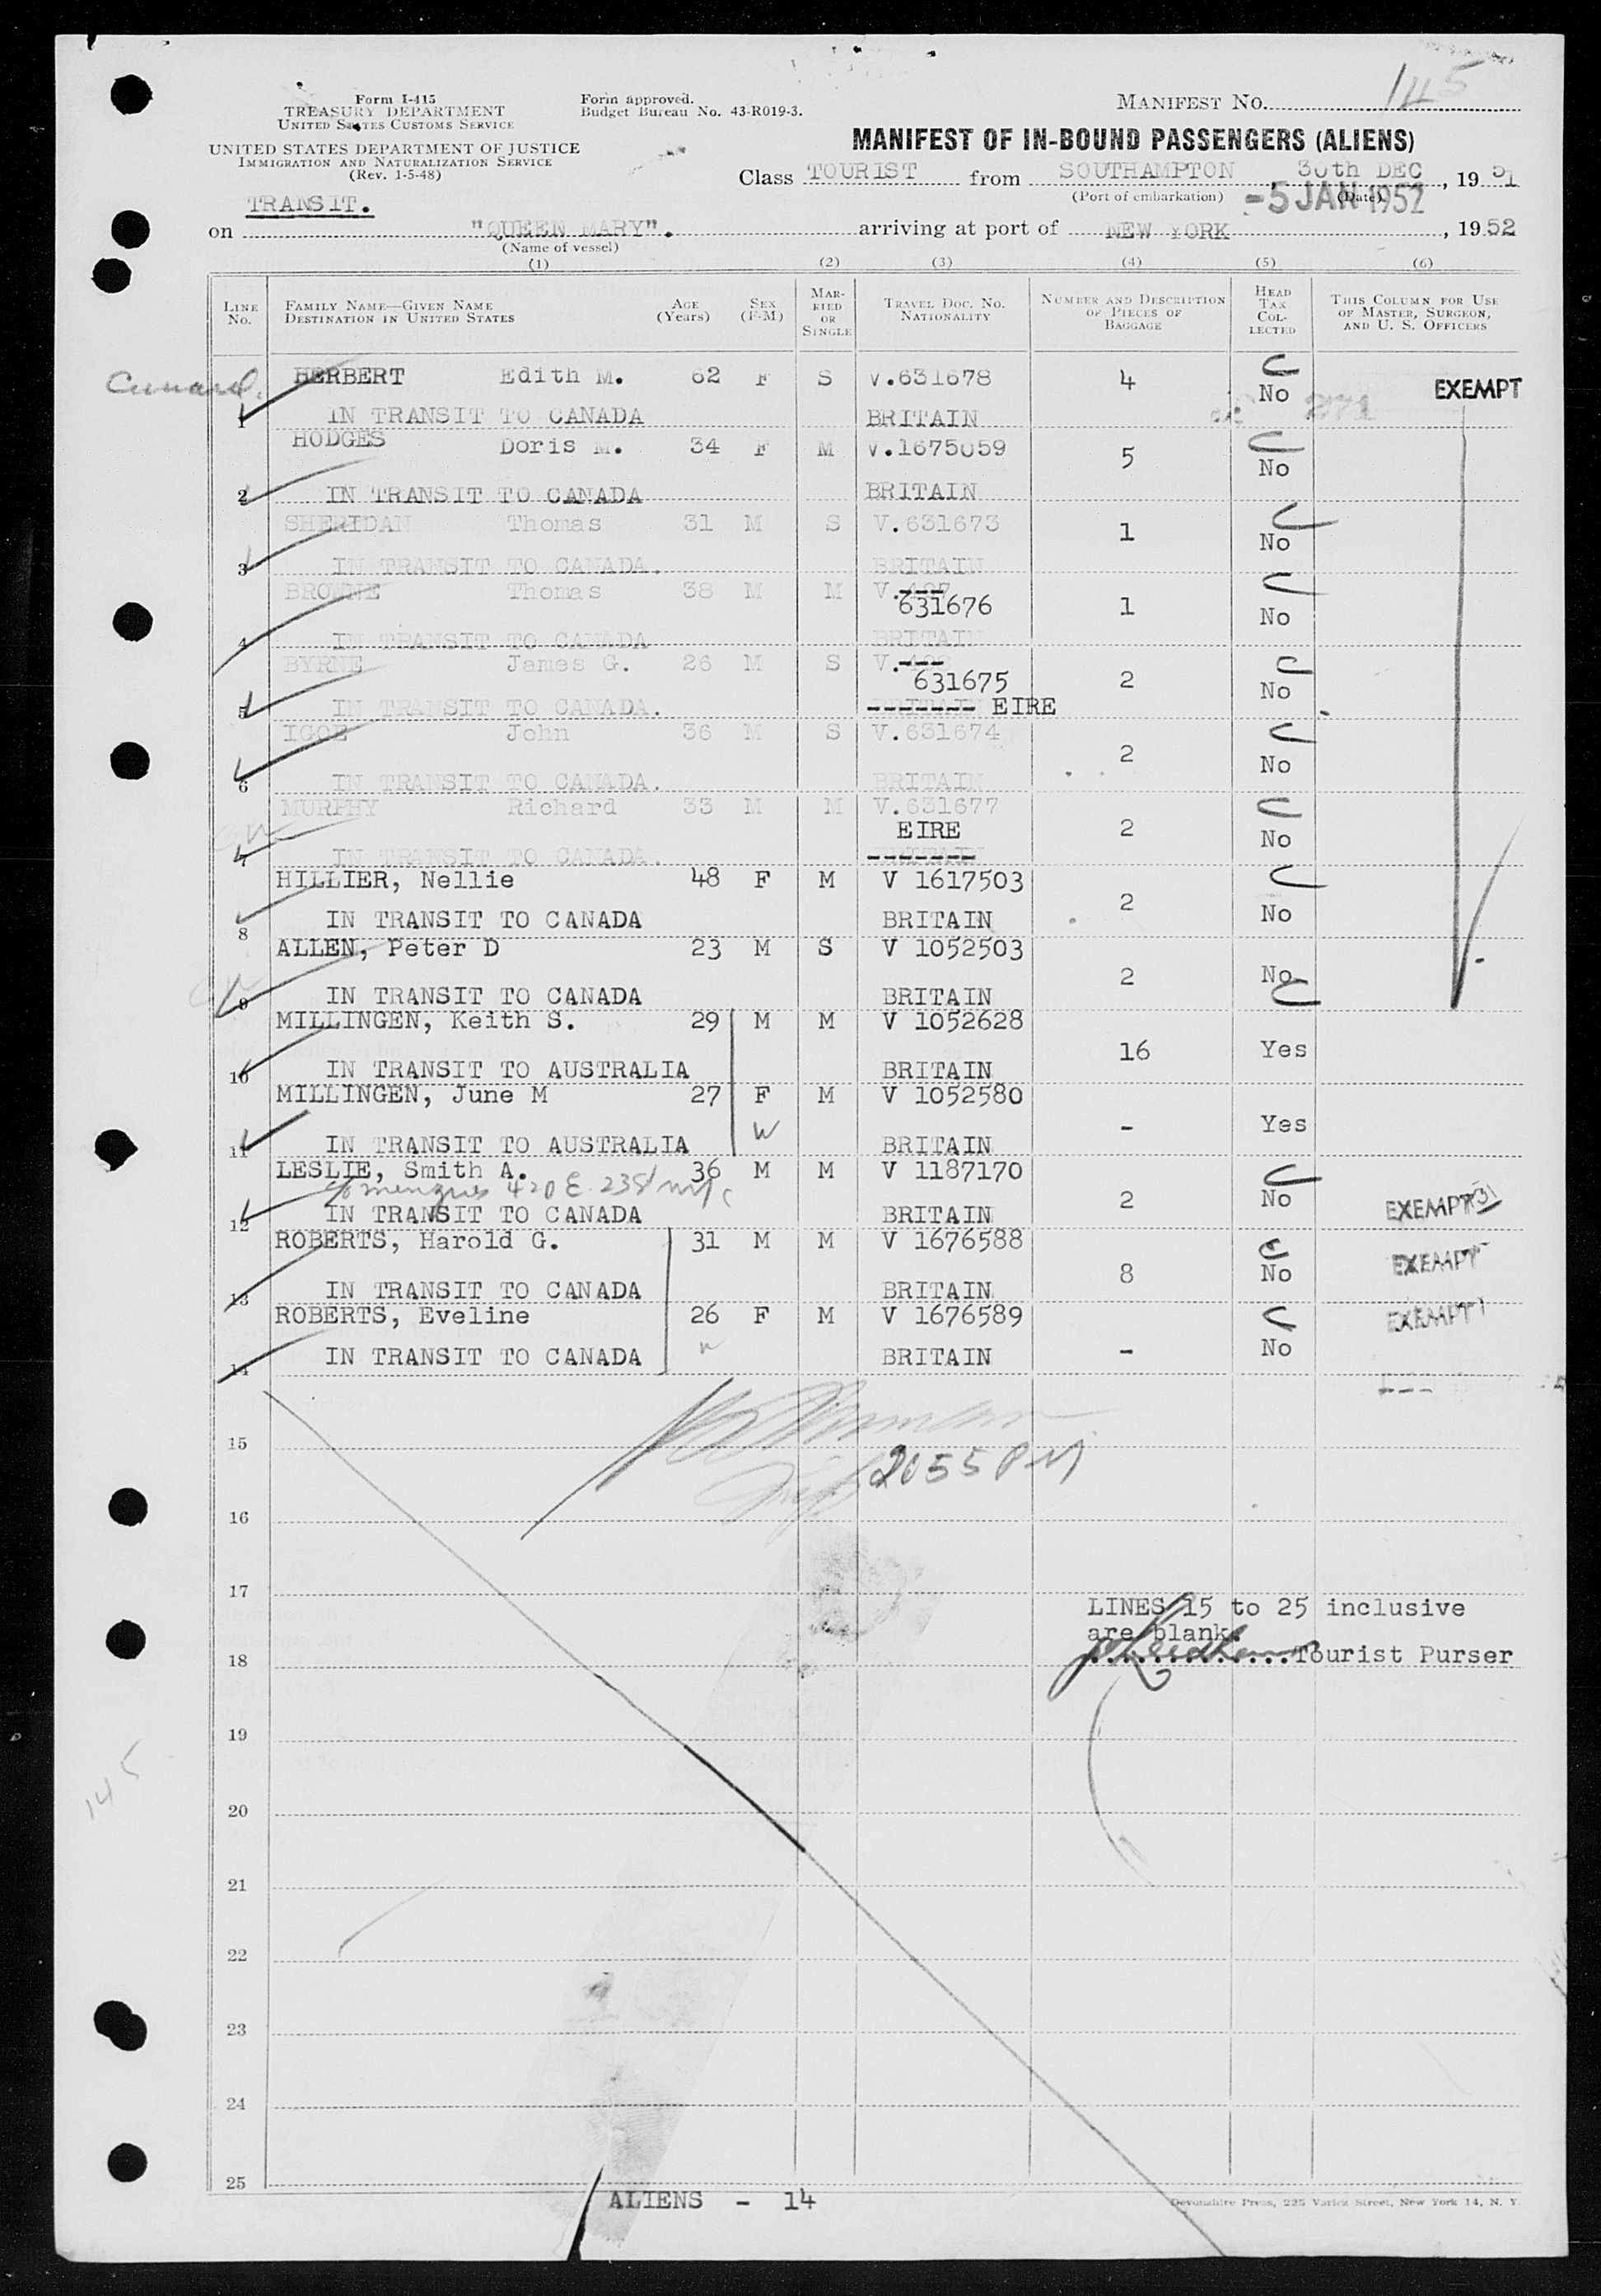 145
Form I-415
TREASURY DEPARTMENT
UNITED STATES CUSTOMS SERVICE
Form approved.
Budget Bureau No. 43-R019-3.
MANIFEST NO.
UNITED STATES DEPARTMENT OF JUSTICE
IMMIGRATION AND NATURALIZATION SERVICE
(Rev. 1-5-48)
MANIFEST OF IN-BOUND PASSENGERS (ALIENS)
Class TOURIST from SOUTHAMPTON, 30th DEC, 1951
(Port of embarkation) (Date)
-5 JAN 1952
TRANSIT.
on "QUEEN MARY". arriving at port of NEW YORK, 1952
(Name of vessel)
(1) (2) (3) (4) (5) (6)
LINE NO. FAMILY NAME—GIVEN NAME DESTINATION IN UNITED STATES AGE (YEARS) SEX (F-M) MARRIED OR SINGLE TRAVEL DOC. NO. NATIONALITY NUMBER AND DESCRIPTION OF PIECES OF BAGGAGE HEAD TAX COLLECTED THIS COLUMN FOR USE OF MASTER, SURGEON, AND U. S. OFFICERS
Cunard.
HERBERT Edith M. 62 F S V.631678 4 C No EXEMPT
1 IN TRANSIT TO CANADA BRITAIN
HODGES Doris M. 34 F M V.1675059 5 C No
2 IN TRANSIT TO CANADA BRITAIN
SHERIDAN Thomas 31 M S V.631673 1 C No
3 IN TRANSIT TO CANADA. BRITAIN
BROWNE Thomas 38 M M V. 631676 1 C No
4 IN TRANSIT TO CANADA BRITAIN
BYRNE James G. 26 M S V. 631675 2 C No
5 IN TRANSIT TO CANADA. ------- EIRE
IGOE John 36 M S V.631674 2 C No
6 IN TRANSIT TO CANADA. BRITAIN
MURPHY Richard 33 M M V.631677 2 C No
EIRE
7 IN TRANSIT TO CANADA. -------
HILLIER, Nellie 48 F M V 1617503 2 C No
8 IN TRANSIT TO CANADA BRITAIN
ALLEN, Peter D 23 M S V 1052503 2 No C
9 IN TRANSIT TO CANADA BRITAIN
MILLINGEN, Keith S. 29 M M V 1052628 16 Yes
10 IN TRANSIT TO AUSTRALIA BRITAIN
MILLINGEN, June M 27 F M V 1052580 - Yes
W
11 IN TRANSIT TO AUSTRALIA BRITAIN
LESLIE, Smith A. 36 M M V 1187170 2 C No EXEMPT
12 IN TRANSIT TO CANADA BRITAIN
ROBERTS, Harold G. 31 M M V 1676588 8 C No EXEMPT
13 IN TRANSIT TO CANADA BRITAIN
ROBERTS, Eveline 26 F M V 1676589 - C No EXEMPT
W
14 IN TRANSIT TO CANADA BRITAIN
15
2055 PM
16
17
LINES 15 to 25 inclusive
are blank.
18
Tourist Purser
19
145
20
21
22
23
24
25
ALIENS - 14
Devonshire Press, 225 Varick Street, New York 14, N. Y.